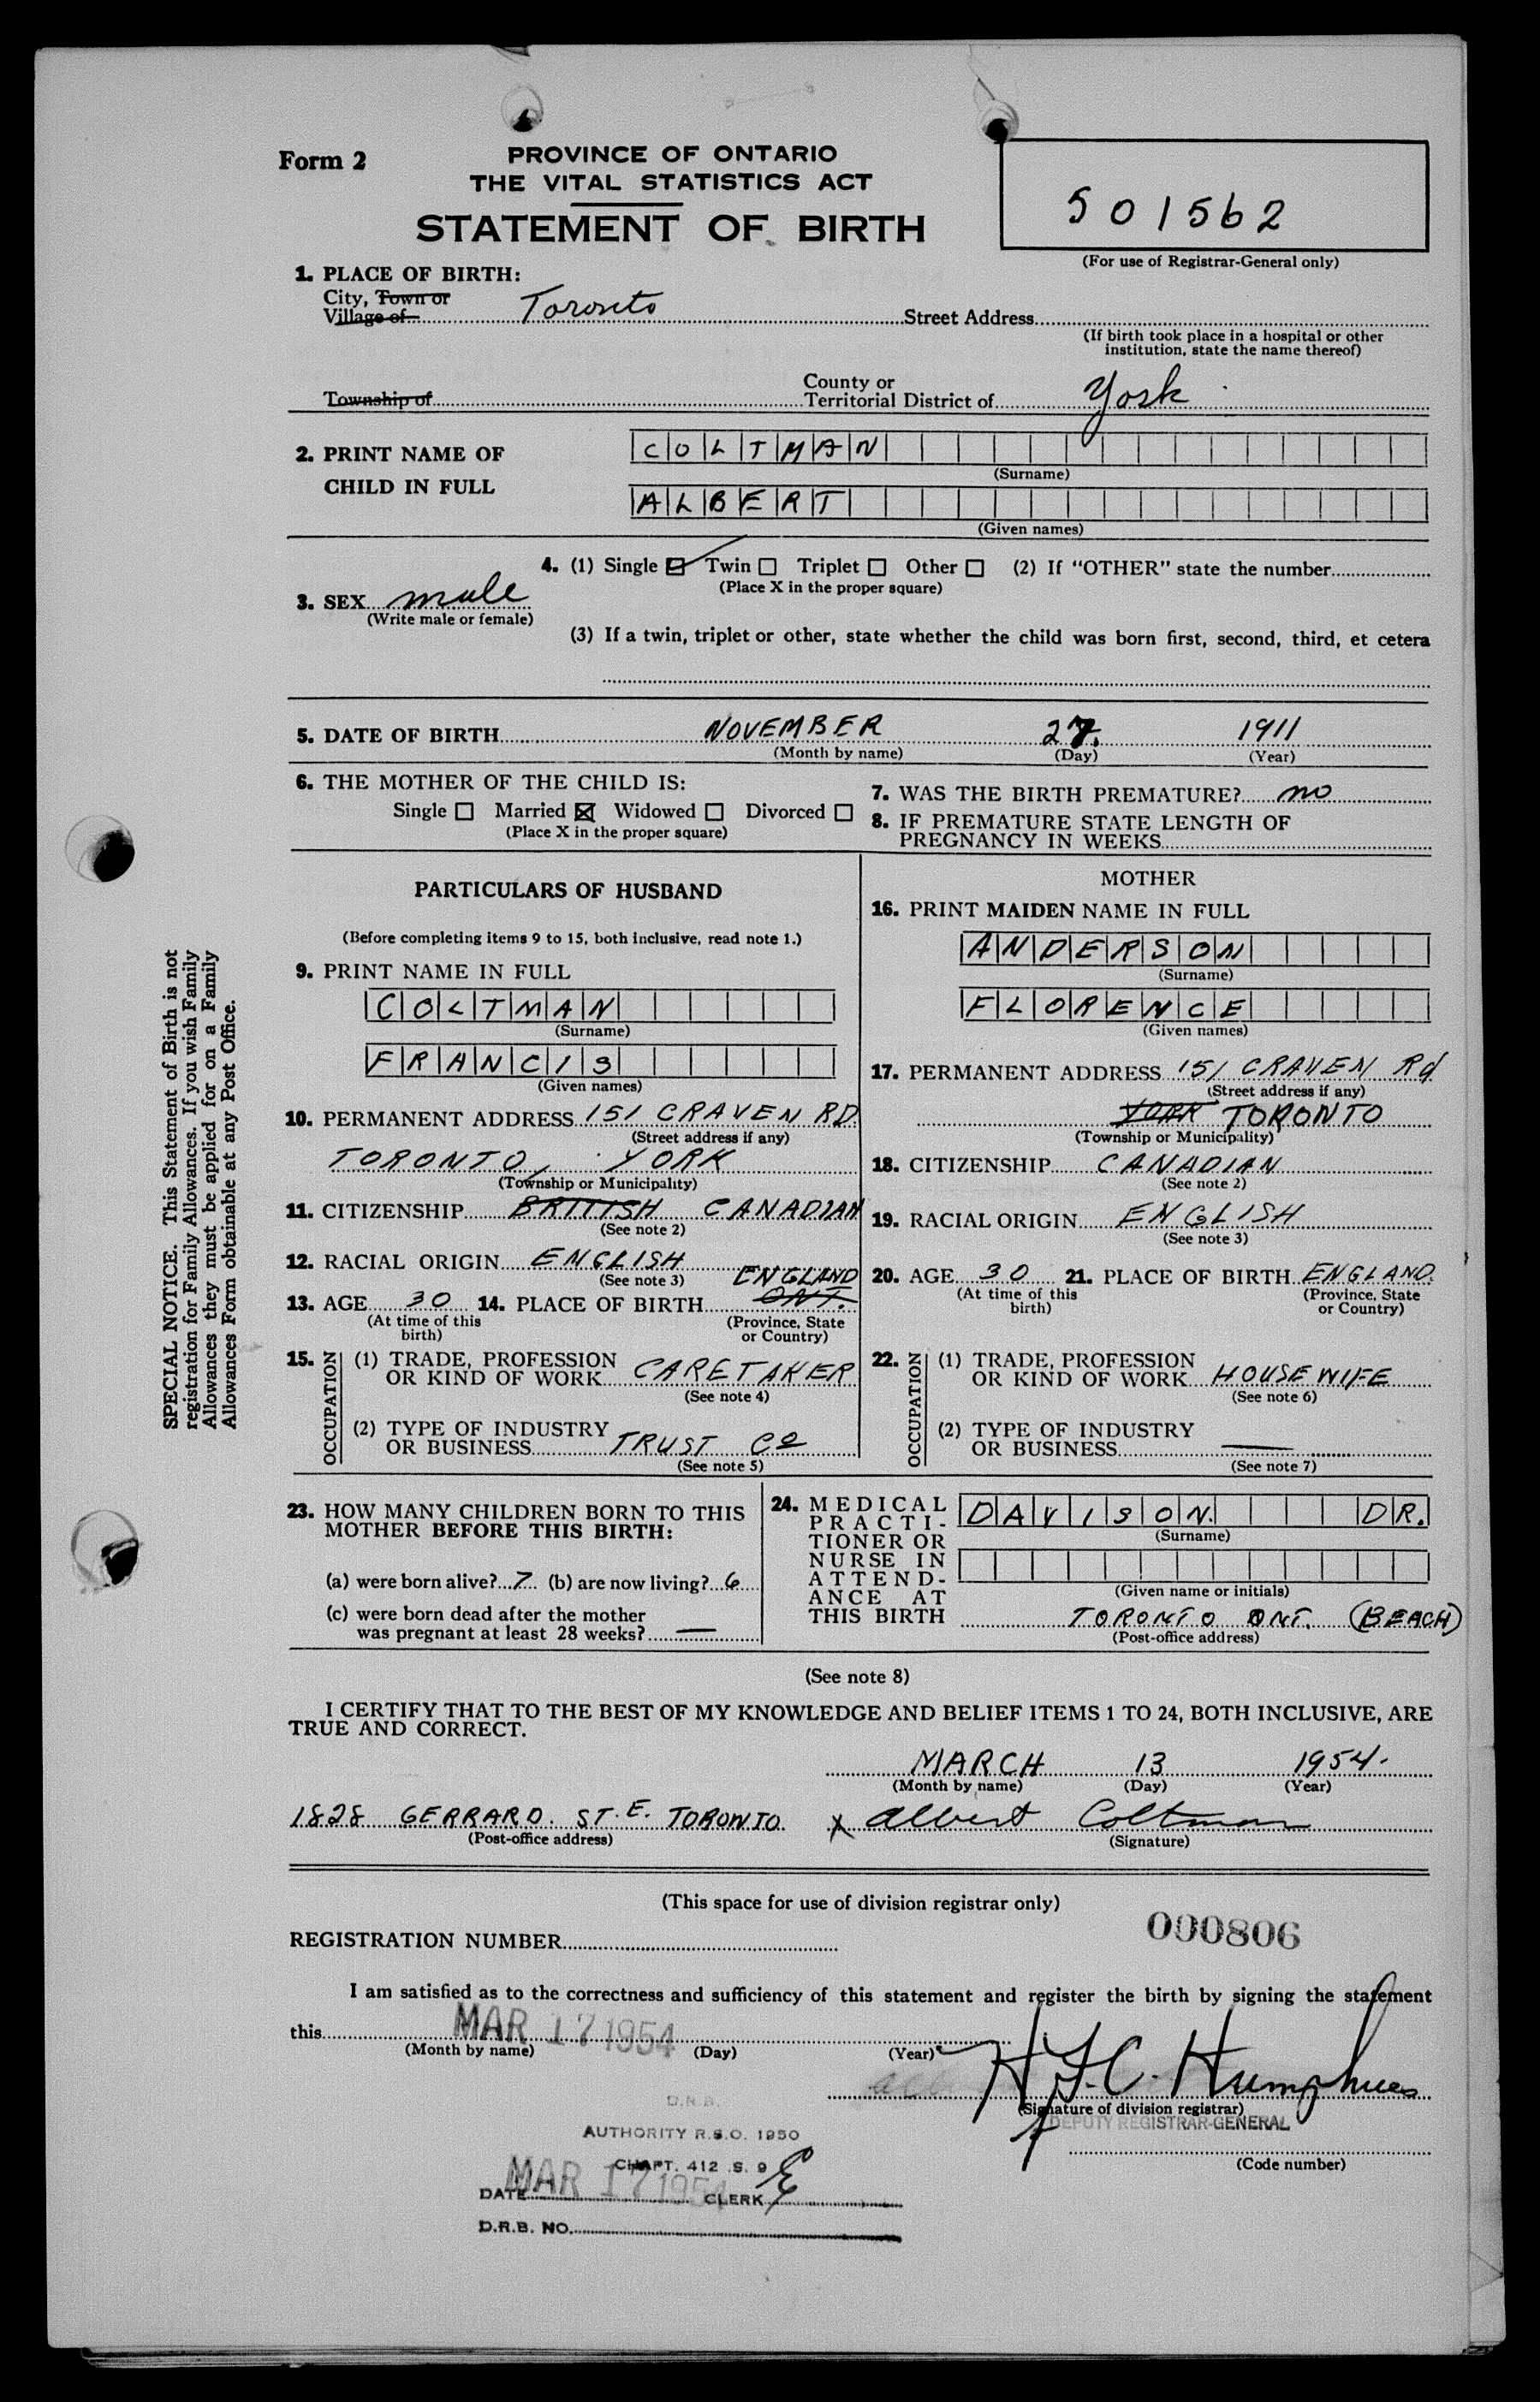 Form 2
PROVINCE OF ONTARIO
THE VITAL STATISTICS ACT
STATEMENT OF BIRTH
501562
(For use of Registrar-General only)
1. PLACE OF BIRTH:
City, Town or
Village of Toronto Street Address
(If birth took place in a hospital or other
institution, state the name thereof)
Township of County or
Territorial District of York
2. PRINT NAME OF
CHILD IN FULL
COLTMAN
(Surname)
ALBERT
(Given names)
3. SEX male
(Write male or female)
4. (1) Single Twin Triplet Other (2) If "OTHER" state the number
(Place X in the proper square)
(3) If a twin, triplet or other, state whether the child was born first, second, third, et cetera
5. DATE OF BIRTH NOVEMBER 27. 1911
(Month by name) (Day) (Year)
6. THE MOTHER OF THE CHILD IS:
Single Married Widowed Divorced
(Place X in the proper square)
7. WAS THE BIRTH PREMATURE? no
8. IF PREMATURE STATE LENGTH OF
PREGNANCY IN WEEKS
PARTICULARS OF HUSBAND
(Before completing items 9 to 15, both inclusive, read note 1.)
9. PRINT NAME IN FULL
COLTMAN
(Surname)
FRANCIS
(Given names)
10. PERMANENT ADDRESS 151 CRAVEN RD.
(Street address if any)
TORONTO, YORK
(Township or Municipality)
11. CITIZENSHIP BRITISH CANADIAN
(See note 2)
12. RACIAL ORIGIN ENGLISH
(See note 3)
ENGLAND
13. AGE 30 14. PLACE OF BIRTH ONT.
(At time of this
birth)
(Province, State
or Country)
15. OCCUPATION
(1) TRADE, PROFESSION
OR KIND OF WORK CARETAKER
(See note 4)
(2) TYPE OF INDUSTRY
OR BUSINESS TRUST CO
(See note 5)
MOTHER
16. PRINT MAIDEN NAME IN FULL
ANDERSON
(Surname)
FLORENCE
(Given names)
17. PERMANENT ADDRESS 151 CRAVEN Rd
(Street address if any)
YORK TORONTO
(Township or Municipality)
18. CITIZENSHIP CANADIAN
(See note 2)
19. RACIAL ORIGIN ENGLISH
(See note 3)
20. AGE 30 21. PLACE OF BIRTH ENGLAND.
(At time of this
birth)
(Province, State
or Country)
22. OCCUPATION
(1) TRADE, PROFESSION
OR KIND OF WORK HOUSEWIFE
(See note 6)
(2) TYPE OF INDUSTRY
OR BUSINESS —
(See note 7)
23. HOW MANY CHILDREN BORN TO THIS
MOTHER BEFORE THIS BIRTH:
(a) were born alive? 7 (b) are now living? 6
(c) were born dead after the mother
was pregnant at least 28 weeks? —
24. MEDICAL
PRACTI-
TIONER OR
NURSE IN
ATTEND-
ANCE AT
THIS BIRTH
DAVISON. DR.
(Surname)
(Given name or initials)
TORONTO ONT. (BEACH)
(Post-office address)
(See note 8)
I CERTIFY THAT TO THE BEST OF MY KNOWLEDGE AND BELIEF ITEMS 1 TO 24, BOTH INCLUSIVE, ARE
TRUE AND CORRECT.
MARCH 13 1954.
(Month by name) (Day) (Year)
1828 GERRARD. ST. E. TORONTO X Albert Coltman
(Post-office address) (Signature)
(This space for use of division registrar only)
000806
REGISTRATION NUMBER
I am satisfied as to the correctness and sufficiency of this statement and register the birth by signing the statement
this MAR 17 1954
(Month by name) (Day) (Year)
H.J.C. Humphries
(Signature of division registrar)
DEPUTY REGISTRAR-GENERAL
(Code number)
D.R.B.
AUTHORITY R.S.O. 1950
CHAPT. 412 S. 9
DATE MAR 17 1954 CLERK E
D.R.B. NO.
SPECIAL NOTICE. This Statement of Birth is not
registration for Family Allowances. If you wish Family
Allowances they must be applied for on a Family
Allowances Form obtainable at any Post Office.